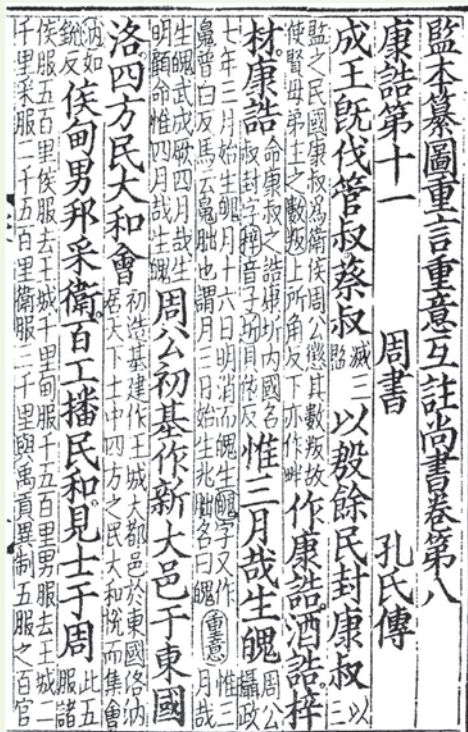 監本纂圖重言重意互註尚書卷第八
康誥第十一 周書 孔氏傳
成王旣伐管叔蔡叔滅三監以殷餘民封康叔以三
監之民國康叔爲衛侯周公懲其數叛故使賢母弟主之數叛上所角反下亦作畔作康誥酒誥梓
材康誥命康叔之誥康圻内國名叔封字梓音子圻具依反惟三月哉生魄周公攝政
七年三月始生魄月十六日明消而魄生魄字又作普白反馬云朏也謂月三日始生兆朏名曰魄重意惟三月哉
生魄武成厥四月哉生明顧命惟四月哉生魄周公初基作新大邑于東國
洛四方民大和會初造基建作王城大都邑於東國洛汭居天下土中四方之民大和悅而集會
汭如銳反侯甸男邦采衛百工播民和見士于周此五服諸
侯服五百里侯服去王城千里甸服千五百里男服去王城二千里采服二千五百里衛服二千里與禹貢異制五服之百官